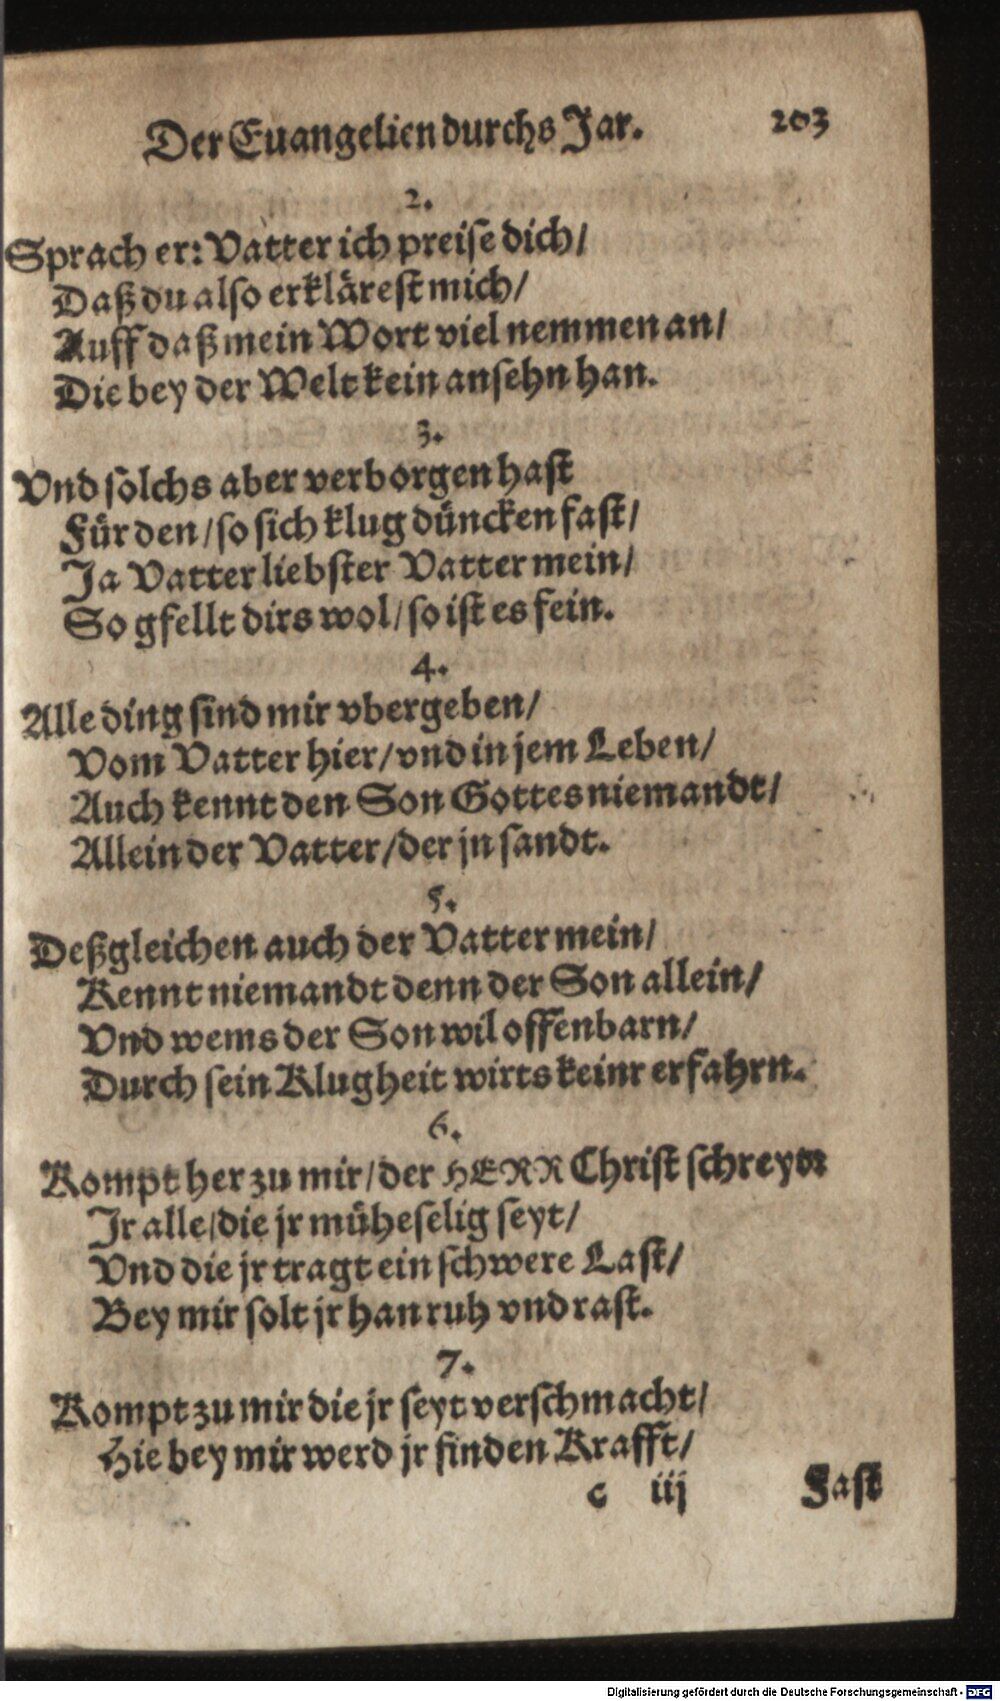 Der Euangelien durchs Jar. 203
2.
Sprach er: Vatter ich preise dich/
Daß du also erklärest mich/
Auff daß mein Wort viel nemmen an/
Die bey der Welt kein ansehn han.
3.
Vnd solchs aber verborgen hast
Für den/ so sich klug düncken fast/
Ja Vatter liebster Vatter mein/
So gfellt dirs wol/ so ist es fein.
4.
Alle ding sind mir vbergeben/
Vom Vatter hier/ vnd in jem Leben/
Auch kennt den Son Gottes niemandt/
Allein der Vatter/ der jn sandt.
5.
Deßgleichen auch der Vatter mein/
Kennt niemandt denn der Son allein/
Vnd wems der Son wil offenbarn/
Durch sein Klugheit wirts keinr erfahrn.
6.
Kompt her zu mir/ der HERR Christ schreyt
Jr alle/ die jr müheselig seyt/
Vnd die jr tragt ein schwere Last/
Bey mir solt jr han ruh vnd rast.
7.
Kompt zu mir die jr seyt verschmacht/
Hie bey mir werd jr finden Krafft/
c iij Fast
Digitalisierung gefördert durch die Deutsche Forschungsgemeinschaft - DFG